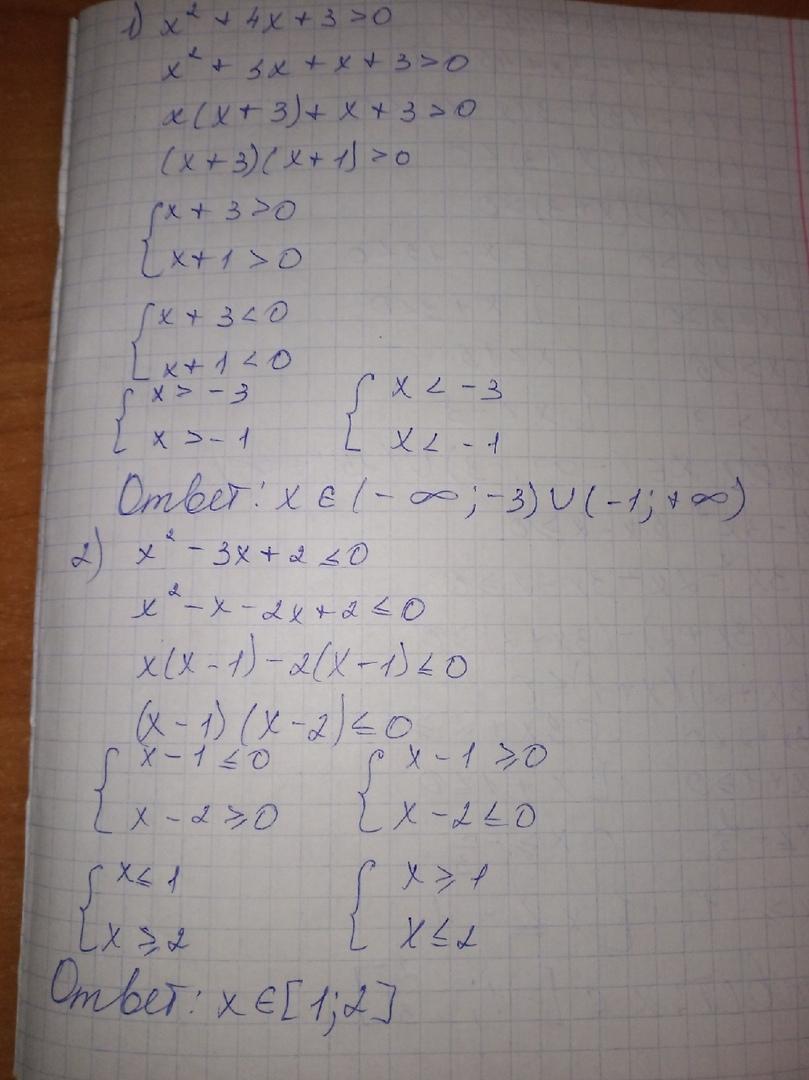 1) x² + 4x + 3 > 0
x² + 3x + x + 3 > 0
x(x + 3) + x + 3 > 0
(x + 3)(x + 1) > 0
{ x + 3 > 0
x + 1 > 0
{ x + 3 < 0
x + 1 < 0
{ x > -3 { x < -3
x > -1 x < -1
Ответ: x ∈ (-∞; -3) ∪ (-1; +∞)
2) x² - 3x + 2 ≤ 0
x² - x - 2x + 2 ≤ 0
x(x - 1) - 2(x - 1) ≤ 0
(x - 1)(x - 2) ≤ 0
{ x - 1 ≤ 0 { x - 1 ≥ 0
x - 2 ≥ 0 x - 2 ≤ 0
{ x ≤ 1 { x ≥ 1
x ≥ 2 x ≤ 2
Ответ: x ∈ [1; 2]